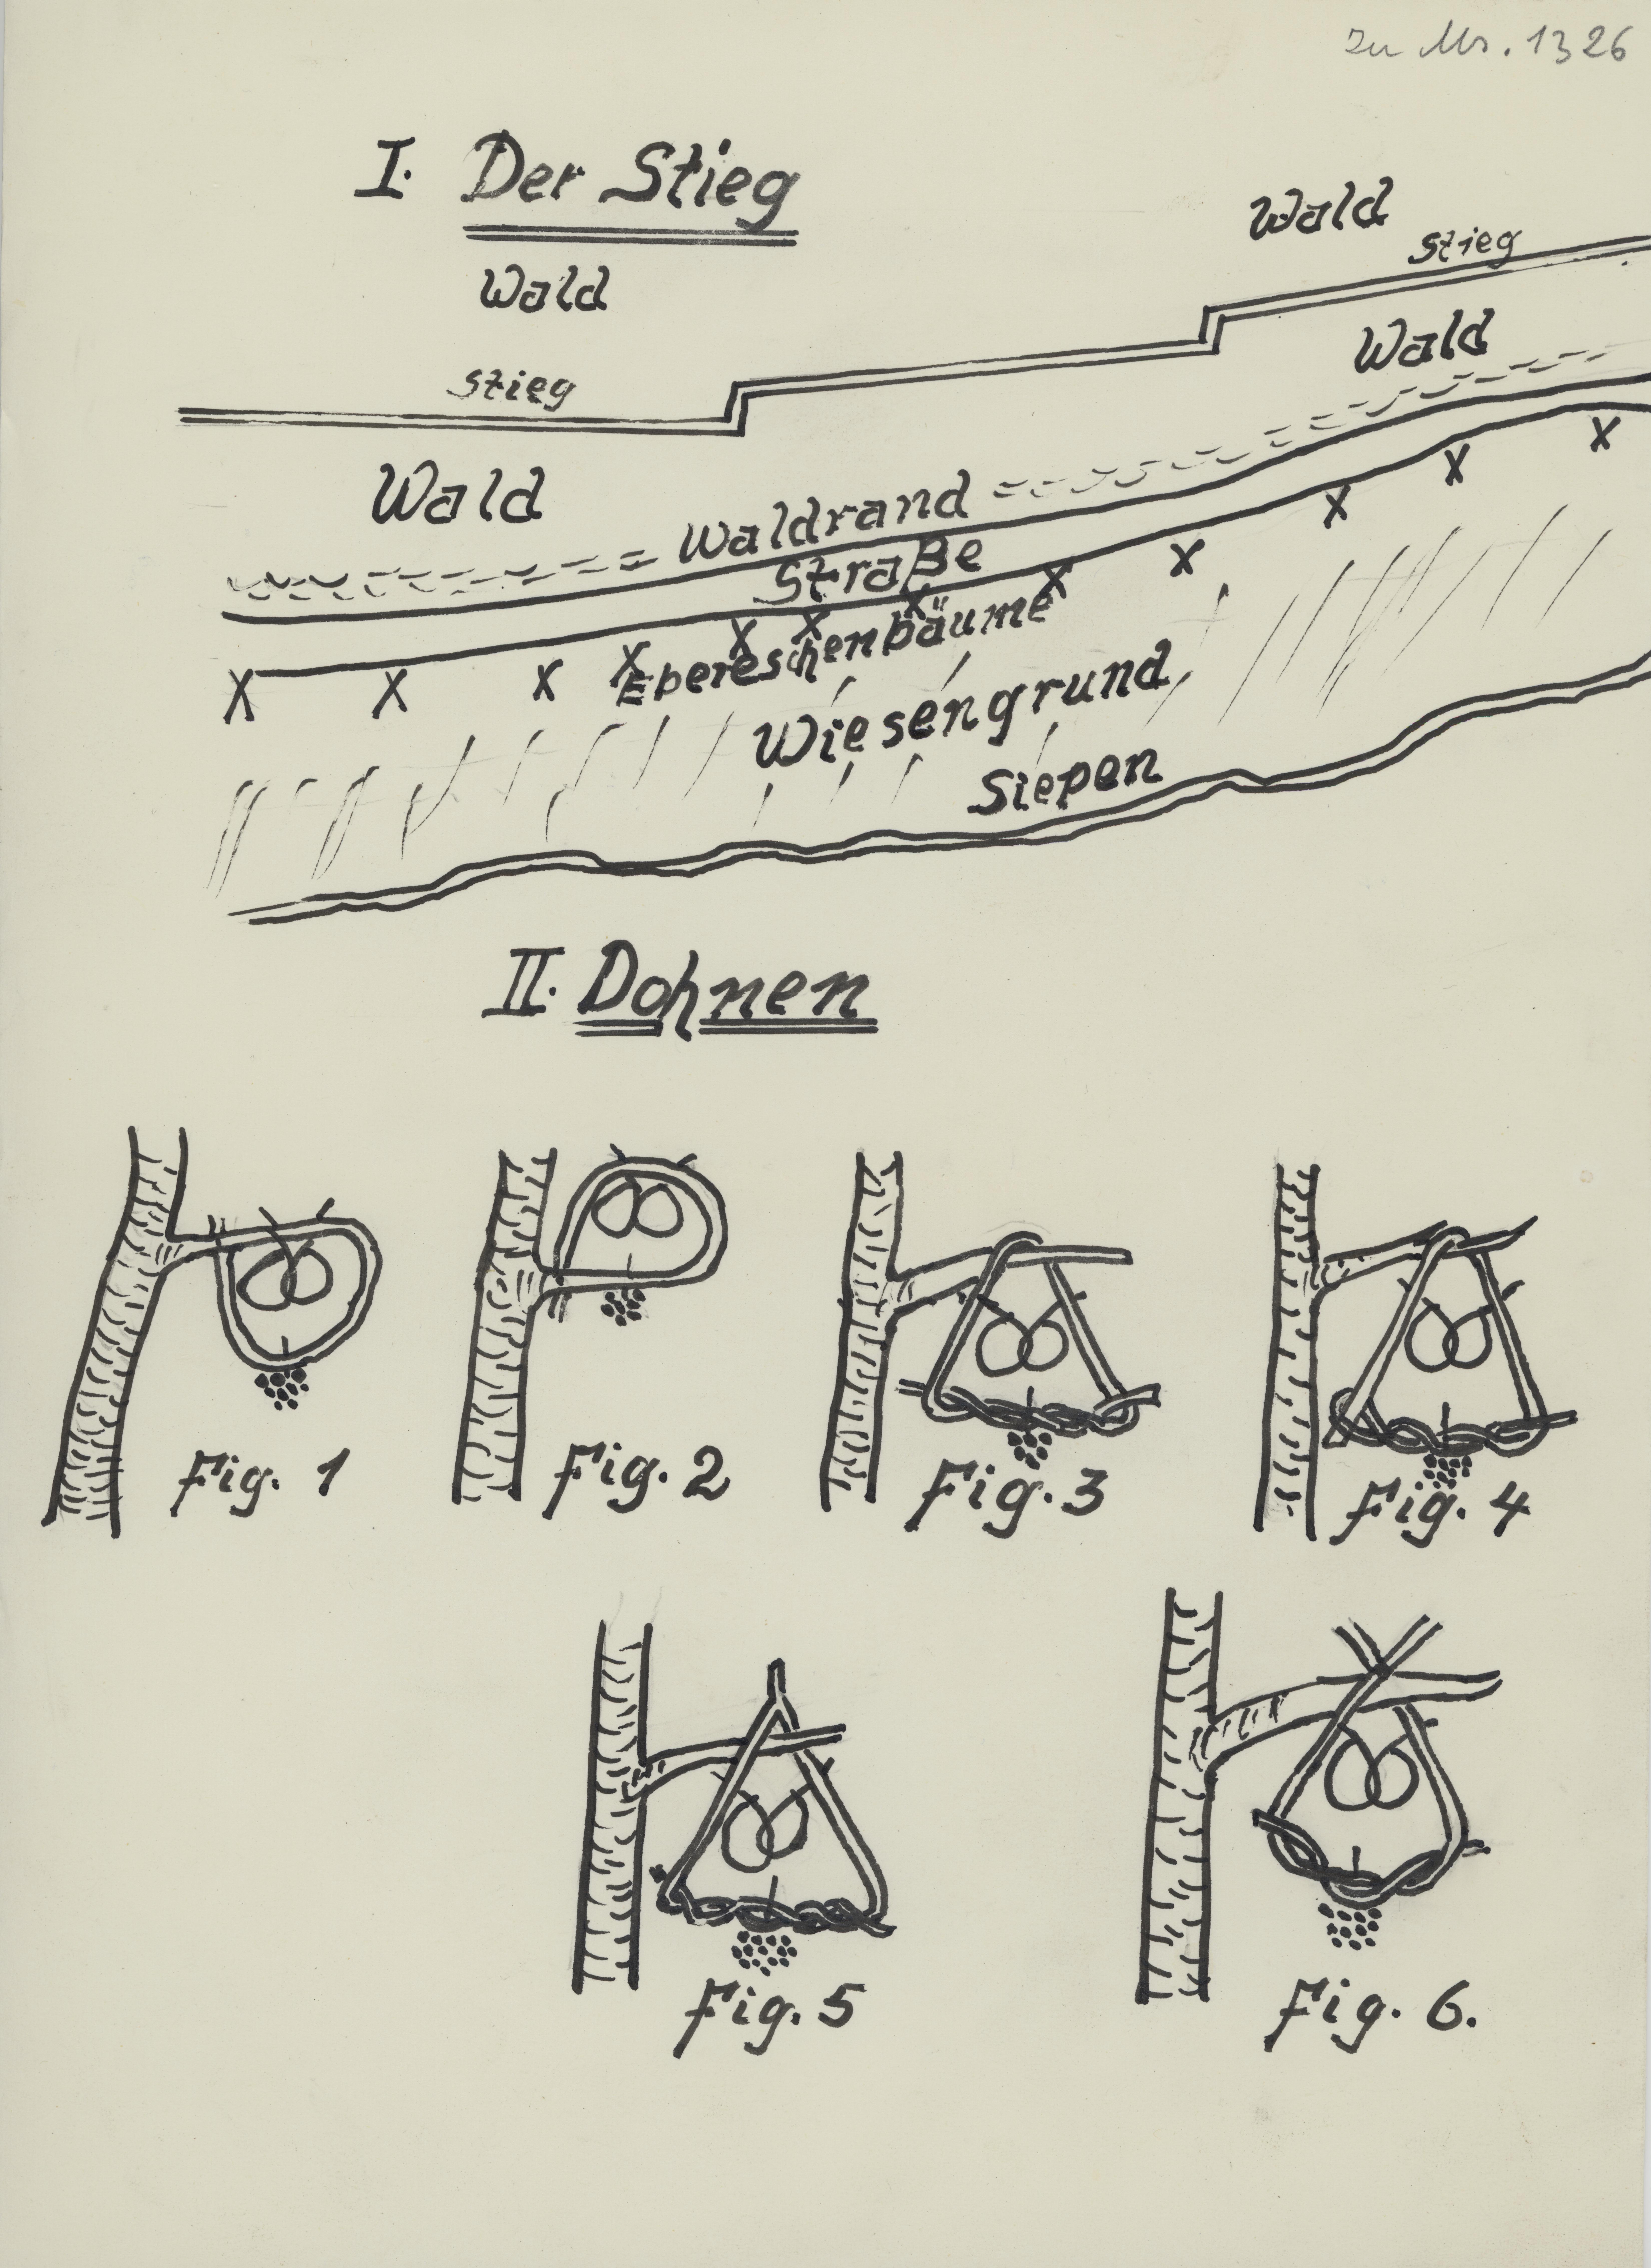 Zu Ms. 1326
I. Der Stieg
Wald
Stieg
Wald
Stieg
Wald
Wald
Waldrand
Straße
Ebereschenbäume
Wiesengrund
Siepen
II. Dohnen
Fig. 1
Fig. 2
Fig. 3
Fig. 4
Fig. 5
Fig. 6.